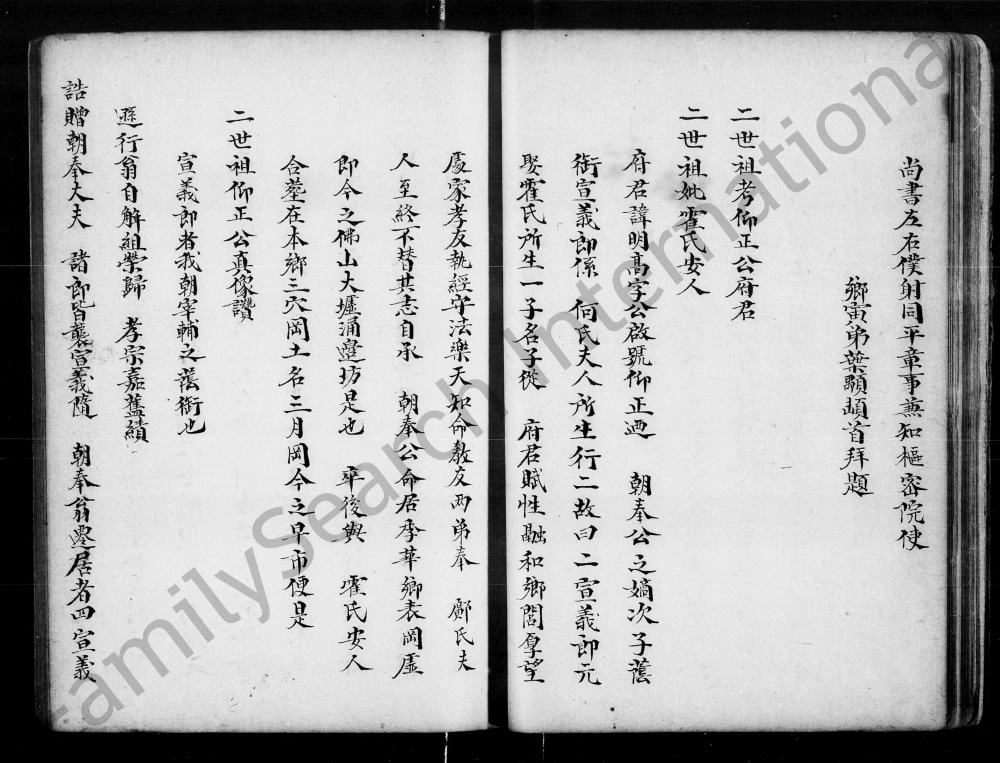 尚書左右僕射同平章事兼知樞密院使
鄉寅弟葉顒頓首拜題
二世祖考仰正公府君
二世祖妣霍氏安人
府君諱明高字公啟號仰正廼　朝奉公之嫡次子蔭
銜宣義郎係　何氏夫人所生行二故曰二宣義郎元
娶霍氏所生一子名子從　府君賦性融和鄉閭厚望
處家孝友執經守法樂天知命教友兩弟奉　鄺氏夫
人至終不替其志自承　朝奉公命居季華鄉表岡墟
即今之佛山大墟涌邊坊是也　卒後與　霍氏安人
合塟在本鄉三穴岡土名三月岡今之早市便是
二世祖仰正公真像讚
宣義郎者我朝宰輔之蔭銜也
遜行翁自解組榮歸　孝宗嘉舊績
誥贈朝奉大夫　諸郎皆襲宣義隨　朝奉翁遷居者四宣義
FamilySearch International